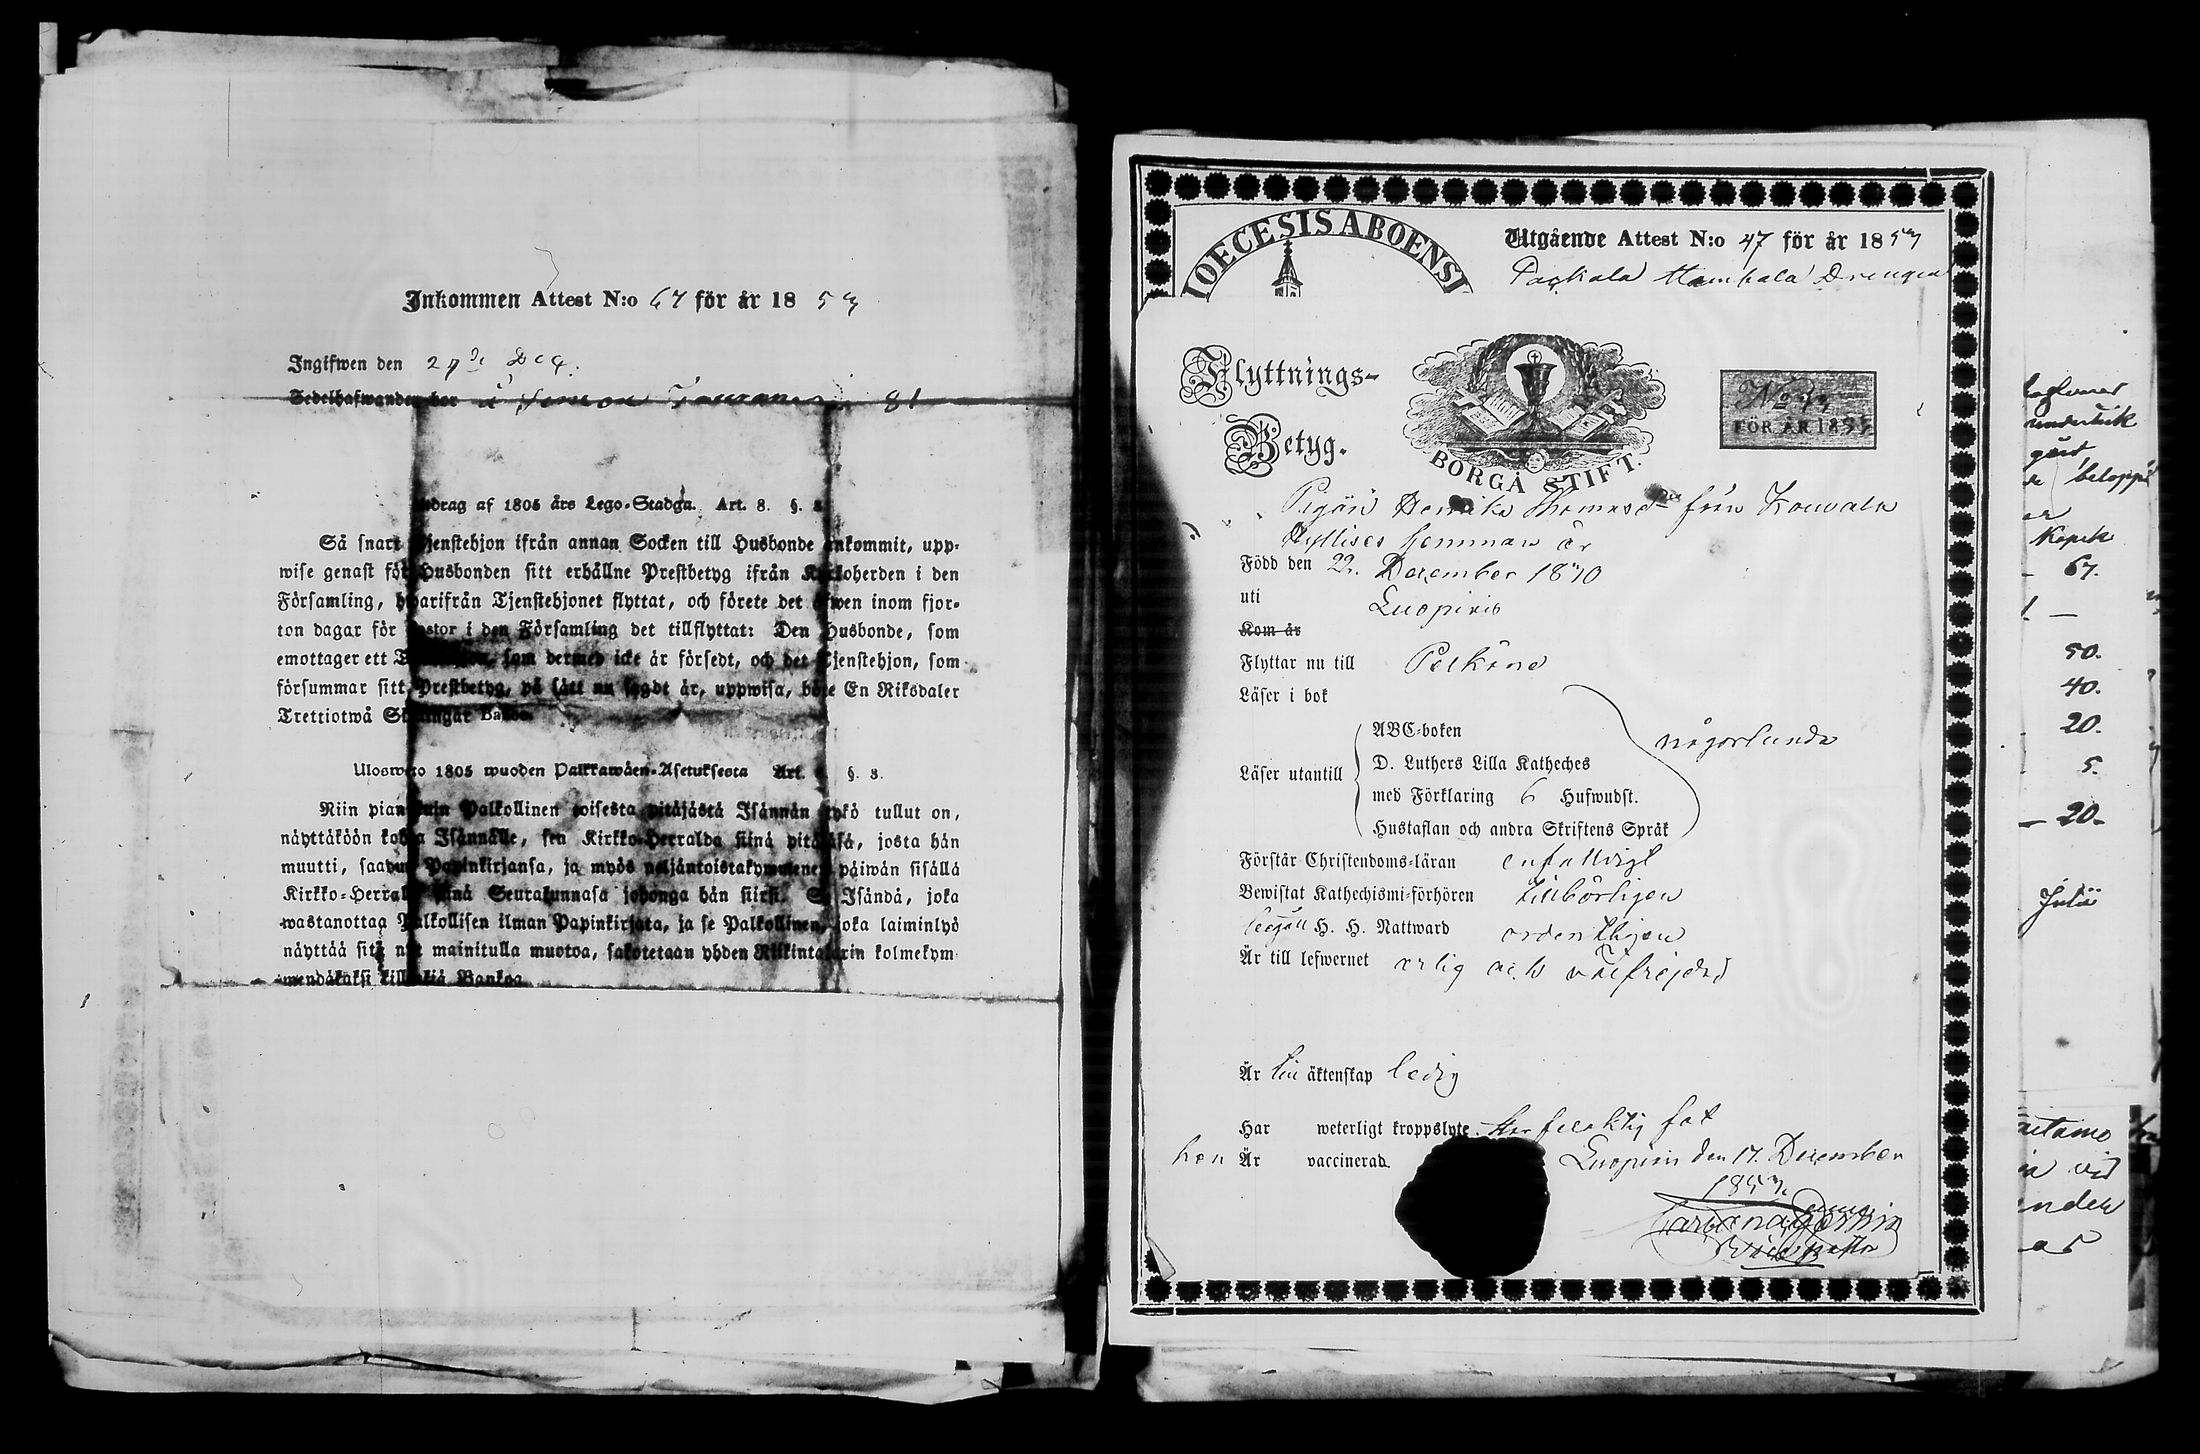 Inkommen Attest N:o 67 för år 1853
Ingifwen den 27de Dec.
Sedelhafwanden bor å Simon 81
drag af 1805 års Lego-Stadga. Art. 8. §.
Så snart Tjenstehjon ifrån annan Socken till Husbonde ankommit, upp-
wise genast för Husbonden sitt erhållne Prestbetyg ifrån Kyrkoherden i den
Församling, hwarifrån Tjenstehjonet flyttat, och förete det äfwen inom fjor-
ton dagar för Pastor i den Församling det tillflyttat: Den Husbonde, som
emottager ett som dermed icke är försedt, och det Tjenstehjon, som
försummar sitt Prestbetyg, på sätt nu sagdt är, uppwisa, böte En Riksdaler
Trettiotwå Skillingar Banco.
Uloswето 1805 wuoden Palkkawäen-Asetuksesta Art. §. 8.
Niin pian kuin Palkollinen toisesta pitäjästä Isännän tykö tullut on,
näyttäköön kohta Isännälle, sen Kirkko-Herralda siinä pitäjäsä, josta hän
muutti, saadun Papinkirjansa, ja myös neljäntoistakymmenen päiwän sisällä
Kirkko-Herralle siinä Seurakunnasa johonga hän siirsi. Se Isändä, joka
wastanottaa Palkollisen ilman Papinkirjata, ja se Palkollinen, joka laiminlyö
näyttää sitä nyt mainitulla muotoa, sakotetaan yhden Riikintalarin kolmekym-
mendäkaksi killingiä Bankoa
IOECESIS ABOENSI
Utgående Attest N:o 47 för år 1853
Drengen
Flyttnings-
Betyg.
BORGÅ STIFT.
FÖR ÅR 1853
Pigan Henrika Thomasdr från Kouvala
Hyllises hemman är
Född den 22. December 1830
uti Luopiois
Kom år
Flyttar nu till Pelkäne
Läser i bok
Läser utantill
ABC-boken
D. Luthers Lilla Katheches
med Förklaring 6 Hufwudst.
Hustaflan och andra Skriftens Språk
någorlunda
Förstår Christendoms-läran enfalldigt
Bewistat Kathechismi-förhören tillbörligen
Begått H. H. Nattward ordentligen
Är till lefwernet ärlig och välfrejdad
Är till äktenskap ledig
Har weterligt kroppslyte. Har felaktig fot
hon Är vaccinerad.
Luopiois den 17. December
1853.
Vice pastor
underkik
belopp
Kopek
67.
1. —
50.
40.
20.
5.
20.
Julii